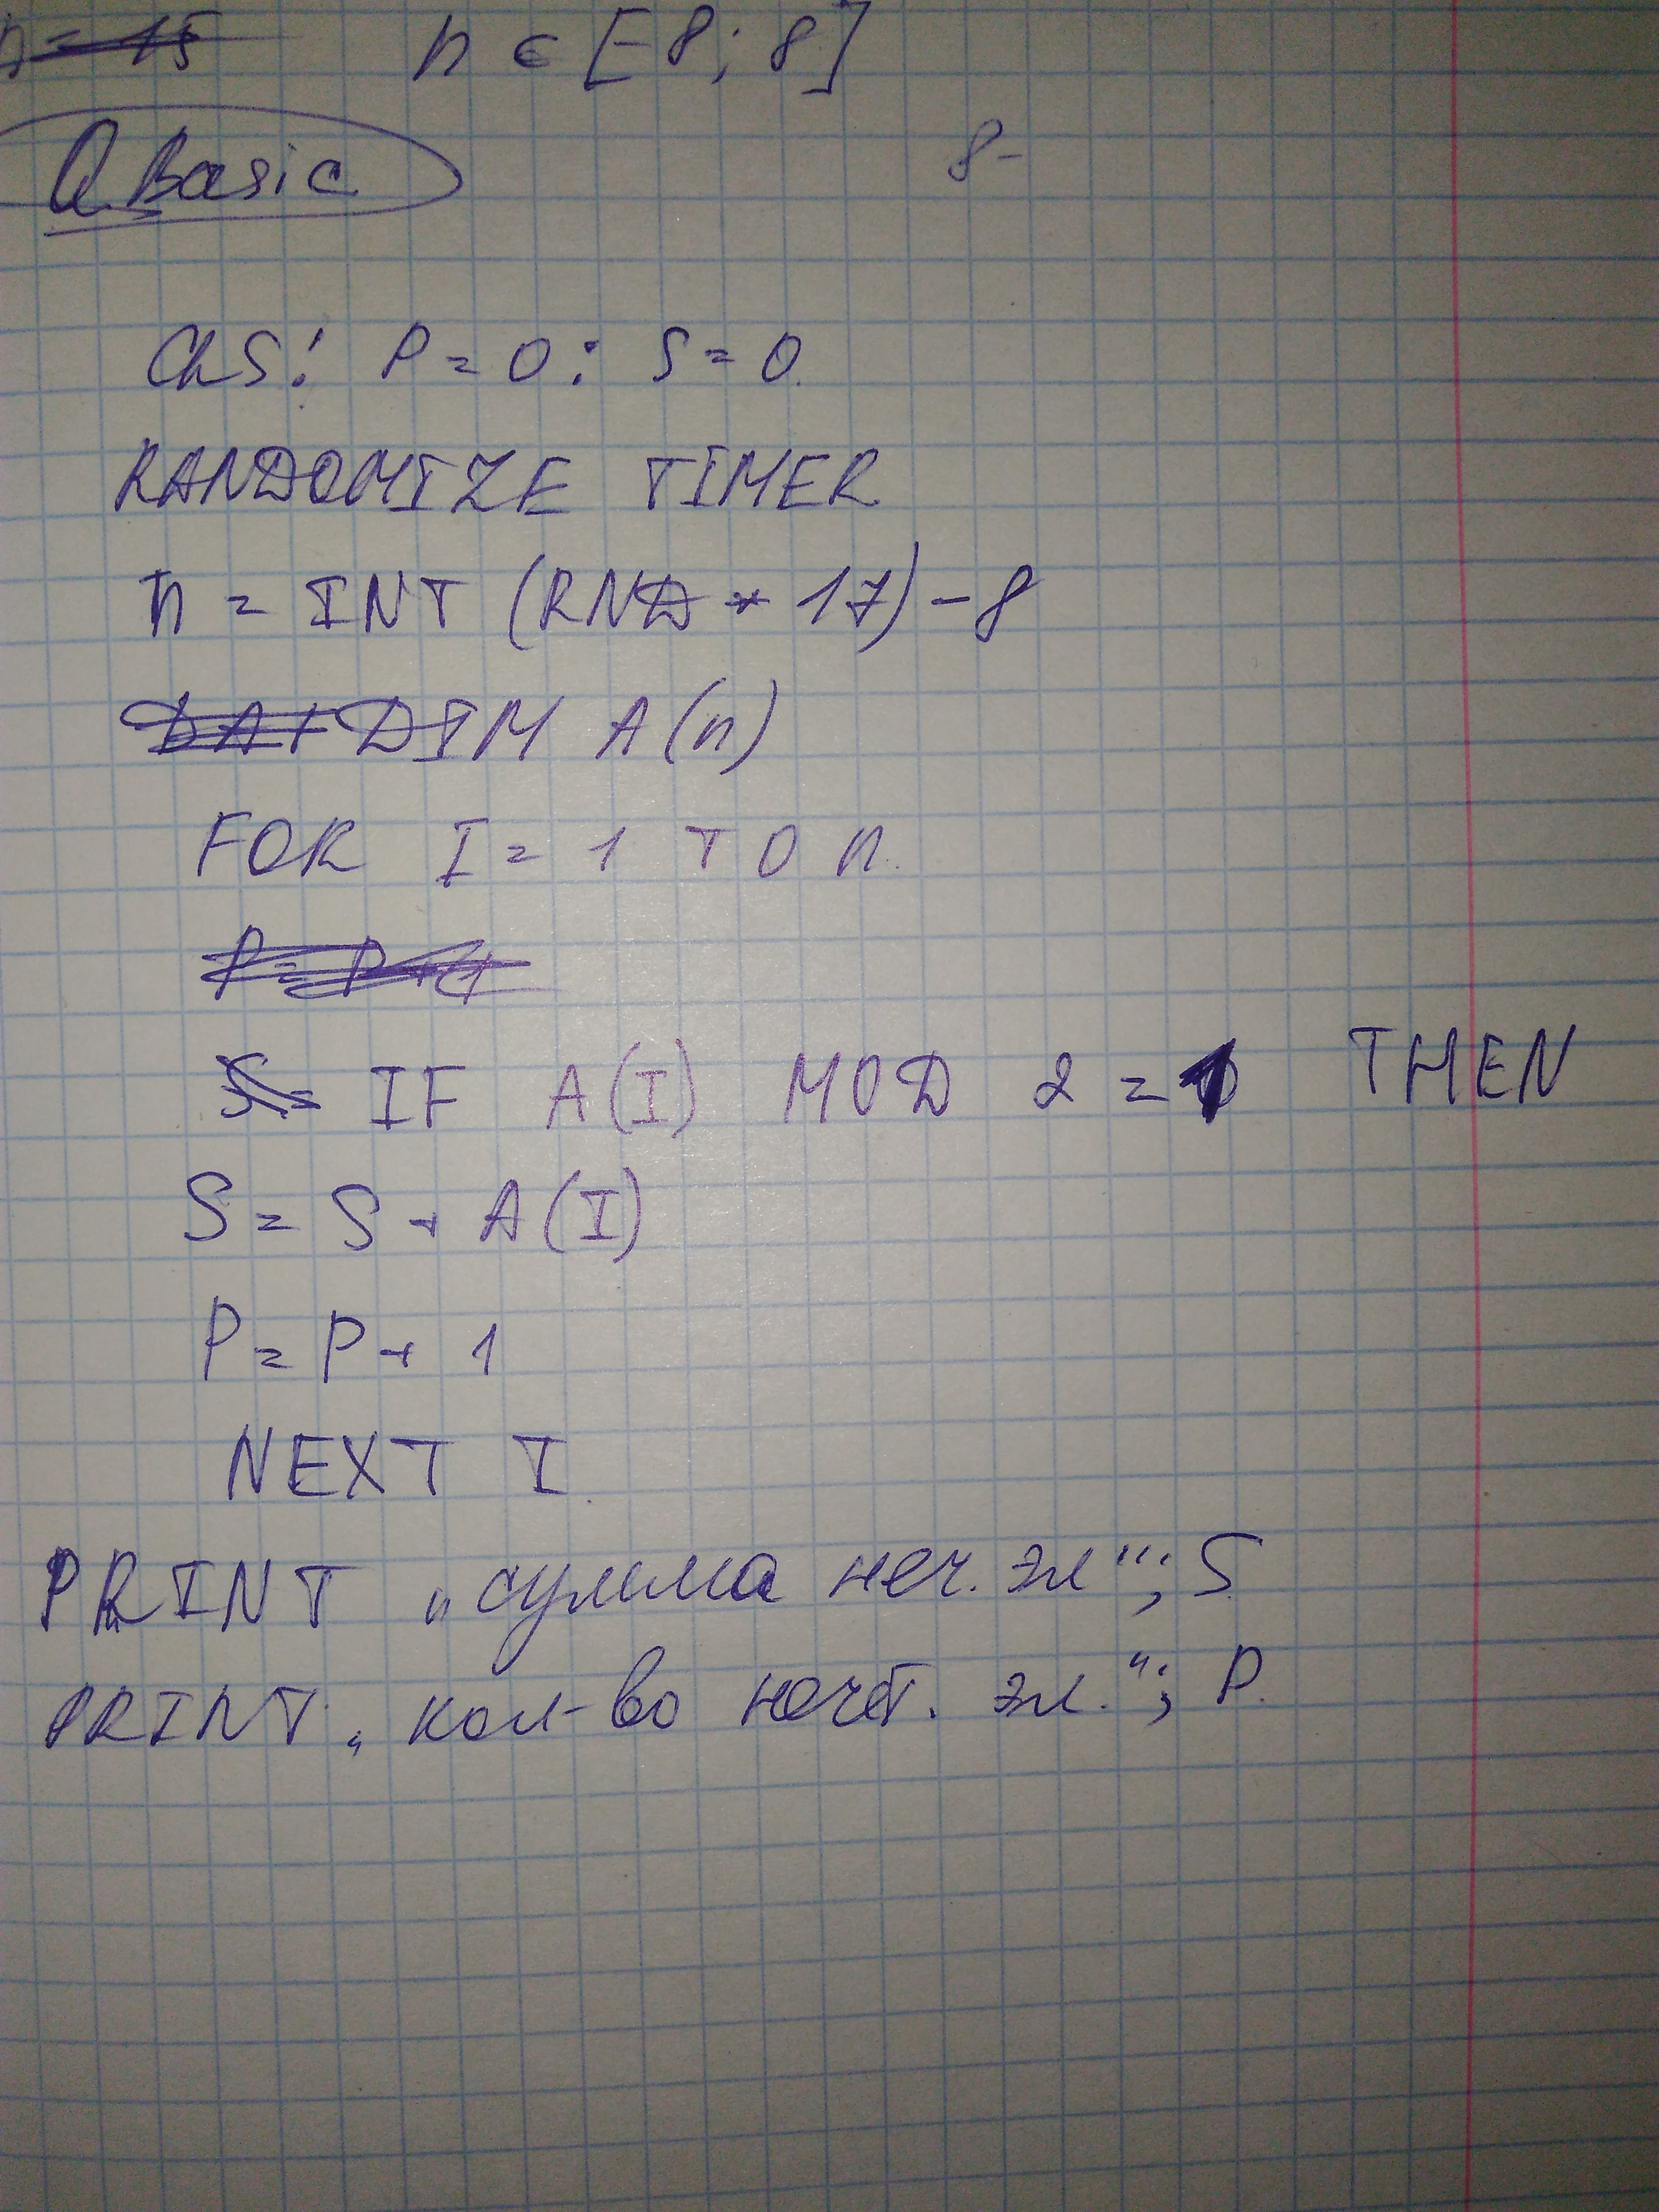 n = 15 n ∈ [-8; 8]
QBasic 8-
CLS: P = 0: S = 0
RANDOMIZE TIMER
n = INT (RND * 17) - 8
DAT DIM A(n)
FOR I = 1 TO n
P = P + 1
S = IF A(I) MOD 2 = 1 THEN
S = S + A(I)
P = P + 1
NEXT I
PRINT „сумма неч. эл“; S
PRINT „кол-во нечёт. эл.“; P